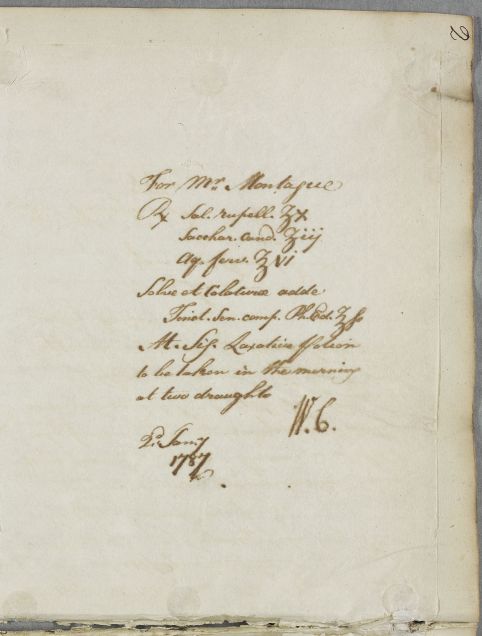 2
For Mr. Montague
℞ Sal. rupell. ʒx
Sacchar. cand. ʒiij
Aq. ferv. ℥vi
Solve et Colaturæ adde
Tinct. Sen. comp. Ph. Ed. ℥ſs
M. Sig. Laxative Potion
to be taken in the morning
at two draughts
W. C.
2d. Jany
1787